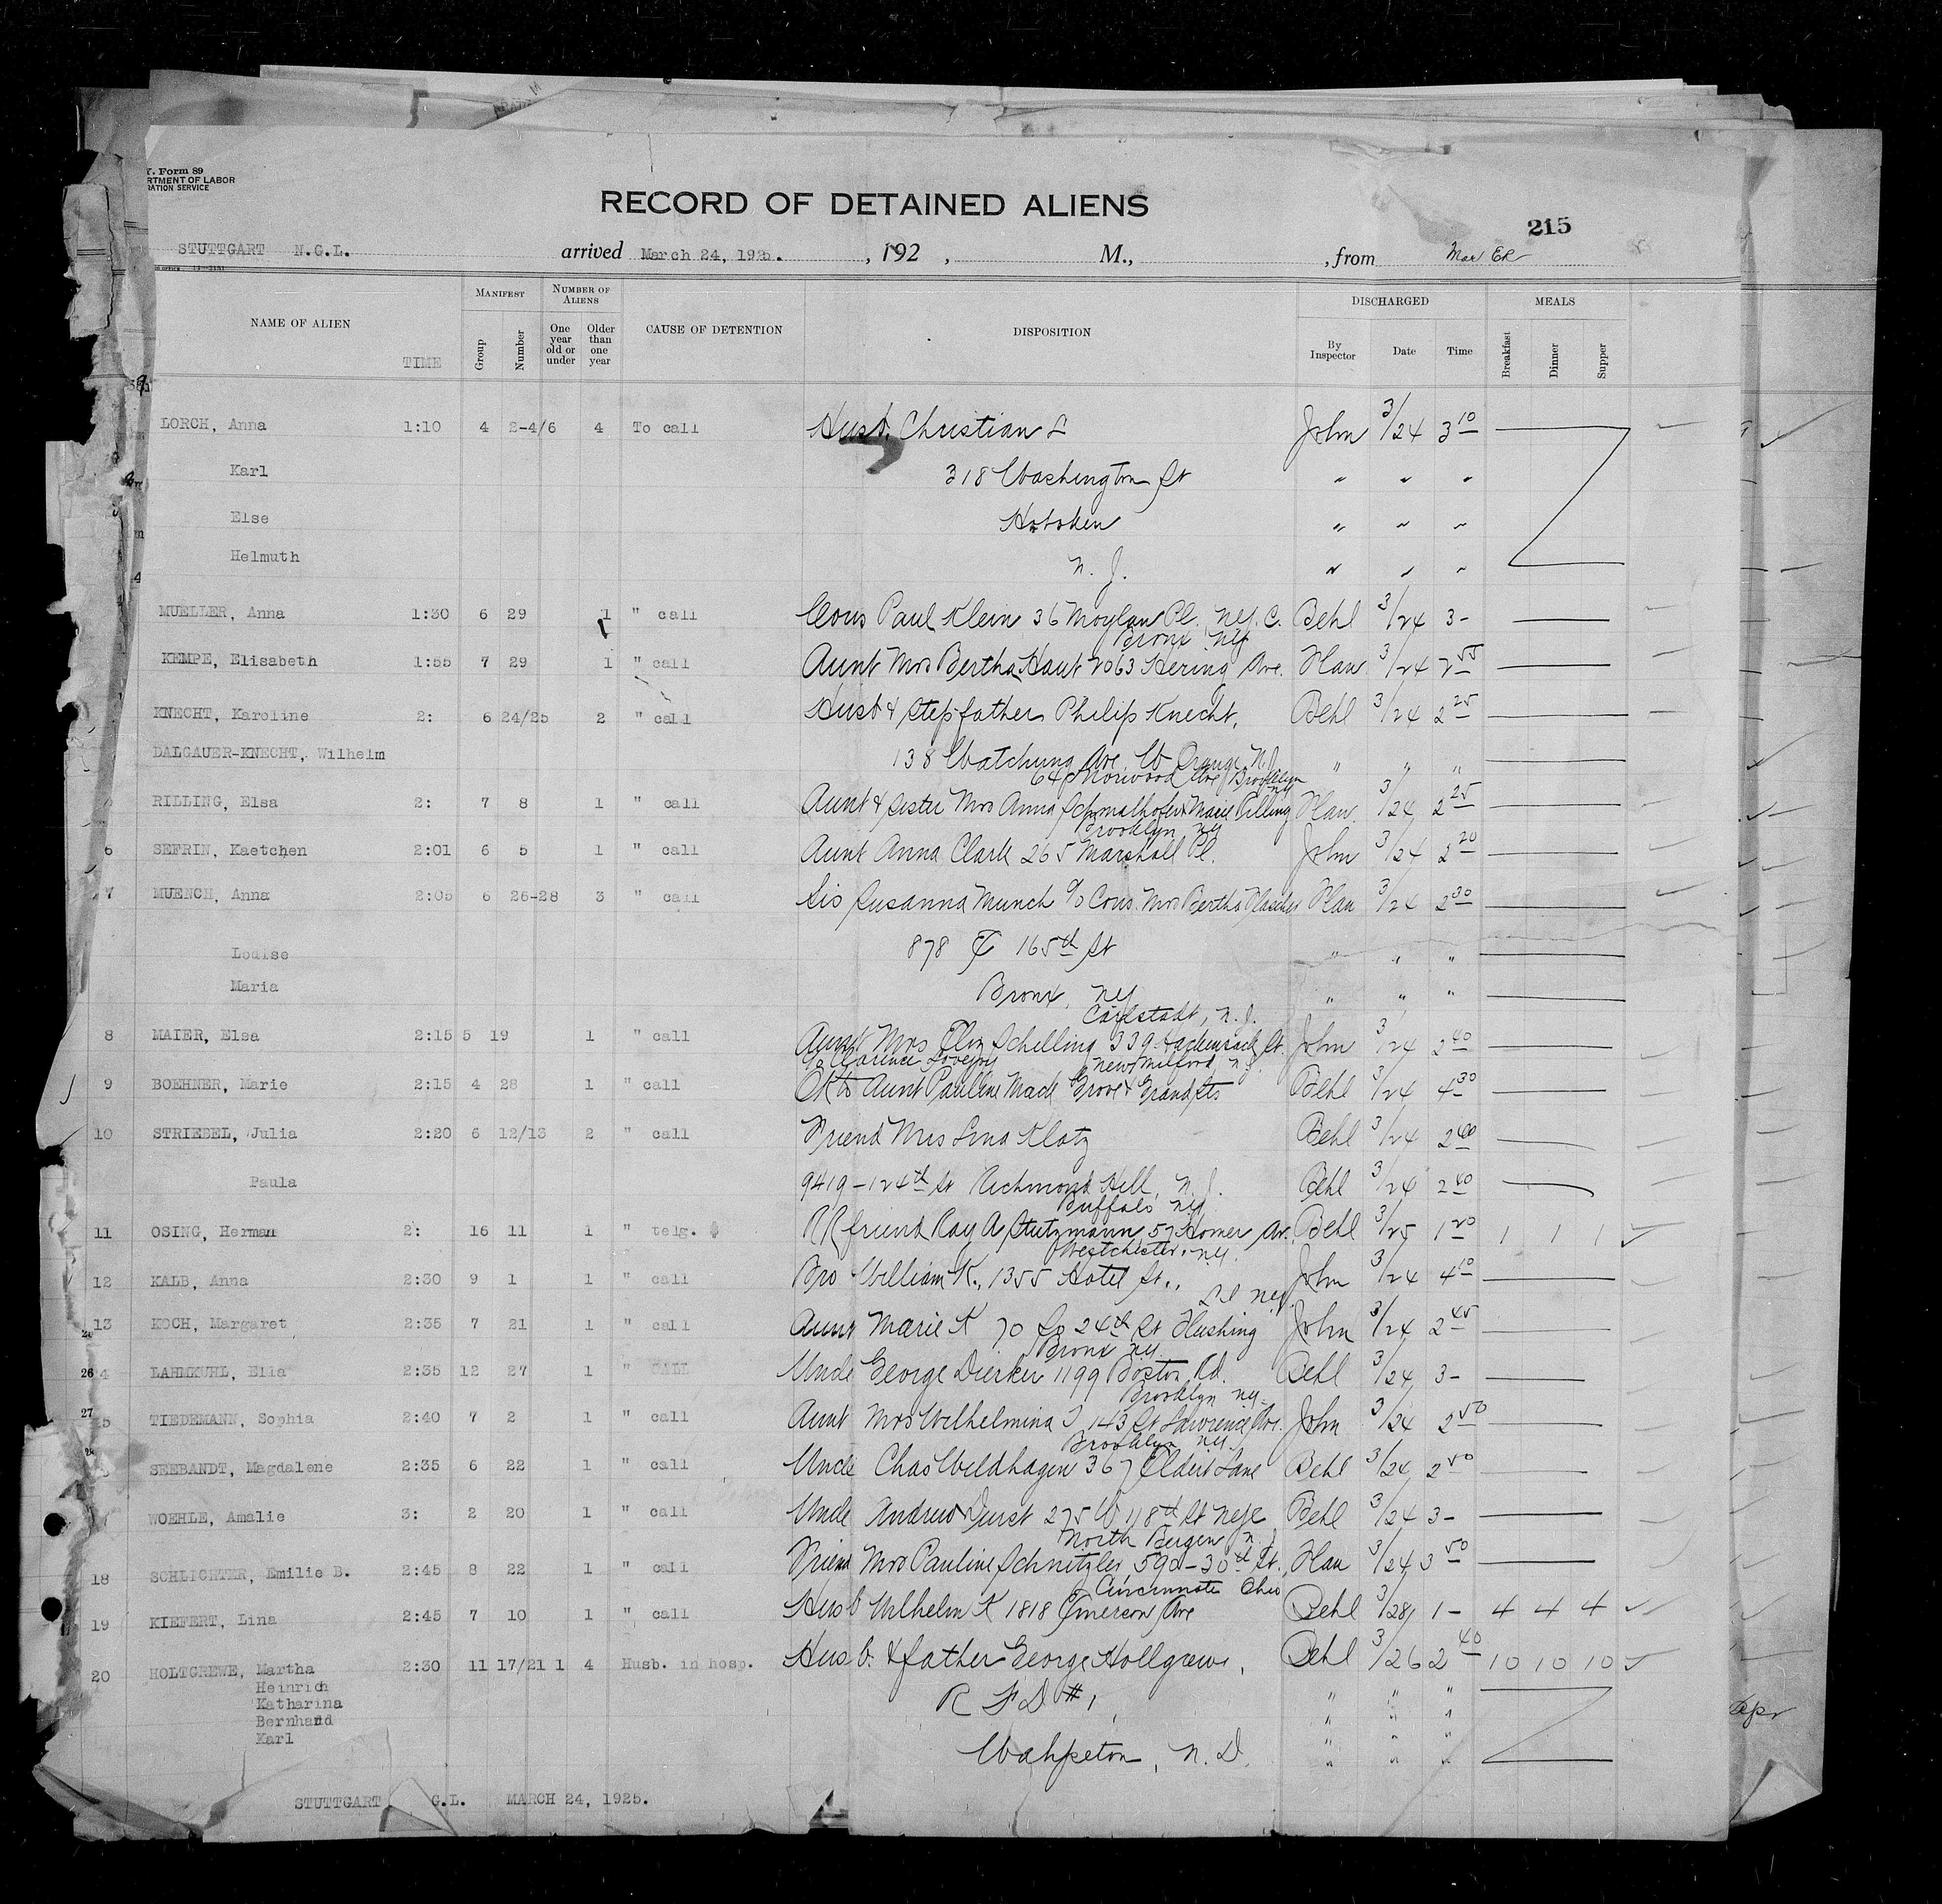 Y. Form 89
RTMENT OF LABOR
RATION SERVICE
RECORD OF DETAINED ALIENS
215
STUTTGART N.G.L. arrived March 24, 1925. , 192 , M., , from Mar
NAME OF ALIEN TIME MANIFEST Group Number NUMBER OF ALIENS One year old or under Older than one year CAUSE OF DETENTION DISPOSITION DISCHARGED By Inspector Date Time MEALS Breakfast Dinner Supper
LORCH, Anna 1:10 4 2-4/6 4 To call Husb. Christian L John 3/24 3 10
Karl 318 Washington St " " "
Else Hoboken " " "
Helmuth N. J. " " "
MUELLER, Anna 1:30 6 29 1 " call Cous Paul Klein 36 Moylan Pl. N.Y.C. Behl 3/24 3-
Bronx NY
KEMPE, Elisabeth 1:55 7 29 1 " call Aunt Mrs Bertha Haut 2063 Hering Ave. 3/24 2 55
KNECHT, Karoline 2: 6 24/25 2 " call Husb & stepfather Philip Knecht, Behl 3/24 2 25
DALGAUER-KNECHT, Wilhelm 138 Watchung Ave. W Orange N.J. " " "
64 Norwood Ave Brooklyn NY
RILLING, Elsa 2: 7 8 1 " call Aunt & sister Mrs Anna Schmalhofer & Marie Rilling 3/24 2 25
Brooklyn NY
6 SEFRIN, Kaetchen 2:01 6 5 1 " call Aunt Anna Clark 265 Marshall Pl. John 3/24 2 20
7 MUENCH, Anna 2:05 6 26-28 3 " call Sis Susanna Munch c/o Cous. Mrs Bertha 3/24 2 30
Louise 878 E 165th St " " "
Maria Bronx, NY " " "
Carlstadt, N.J.
8 MAIER, Elsa 2:15 5 19 1 " call Aunt Mrs Eliz Schelling 339 Hackensack St. John 3/24 2 40
c/o Clarence Lovejoy New Milford, N.J.
9 BOEHNER, Marie 2:15 4 28 1 " call OK to Aunt Pauline Mack Grove & Grand Sts Behl 3/24 4 30
10 STRIEBEL, Julia 2:20 6 12/13 2 " call Friend Mrs Lina Klotz Behl 3/24 2 40
Paula 9419-124th St Richmond Hill, N.J. Behl 3/24 2 40
Buffalo NY
11 OSING, Herman 2: 16 11 1 " telg. RR friend Ray A Stutzmann 57 Homer Av. Behl 3/25 1 20 1 1 1
Westchester, NY.
12 KALB, Anna 2:30 9 1 1 " call Bro William K., 1355 Hotel St., John 3/24 4 10
L I NY.
13 KOCH, Margaret 2:35 7 21 1 " call Aunt Marie K 70 So 24th St Flushing John 3/24 2 45
Bronx NY.
26 4 LAHMKUHL, Ella 2:35 12 27 1 " CALL Uncle George Dierker 1199 Boston Rd. Behl 3/24 3-
Brooklyn NY.
27 5 TIEDEMANN, Sophia 2:40 7 2 1 " call Aunt Mrs Wilhelmina T 143 St Lawrence Ave. John 3/24 2 50
Brooklyn NY.
SEEBANDT, Magdalene 2:35 6 22 1 " call Uncle Chas Weldhagen 367 Eldert Lane Behl 3/24 2 50
WOEHLE, Amalie 3: 2 20 1 " call Uncle Andrew Durst 275 W 118th St NYC Behl 3/24 3-
North Bergen N.J.
18 SCHLICHTER, Emilie B. 2:45 8 22 1 " call Friend Mrs Pauline Schnitzler 592-30th St. 3/24 3 50
Cincinnati Ohio
19 KIEFERT, Lina 2:45 7 10 1 " call Husb Wilhelm K 1818 Emerson Ave Behl 3/28 1- 4 4 4
20 HOLTGREWE, Martha 2:30 11 17/21 1 4 Husb. in hosp. Husb. & father George Hollgrewe, Behl 3/26 2 40 10 10 10
Heinrich R F D #1, " " "
Katharina " " "
Bernhard " " "
Karl Wahpeton, N. D. " " "
STUTTGART G.L. MARCH 24, 1925.